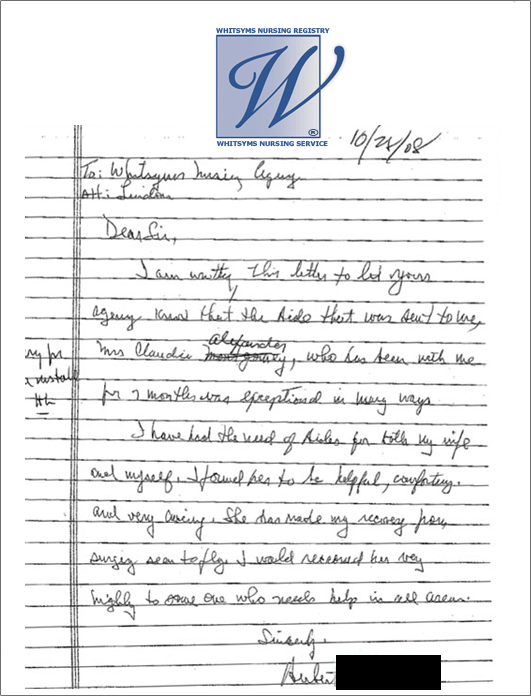 WHITSYMS NURSING REGISTRY
W
®
WHITSYMS NURSING SERVICE
10/28/08
To: Whitsyms Nursing Agency
Att: Lindon
Dear Sir,
I am writing this letter to let your
agency know that the Aide that was sent to me,
Alexander
Mrs Claudia Montgomery, who has been with me
for 7 months was exceptional in many ways
I have had the need of Aides for both my wife
and myself. I found her to be helpful, comforting.
and very caring. She has made my recovery from
surgery seem to fly. I would recommend her very
highly to some one who needs help in all areas.
Sincerely,
Herbert